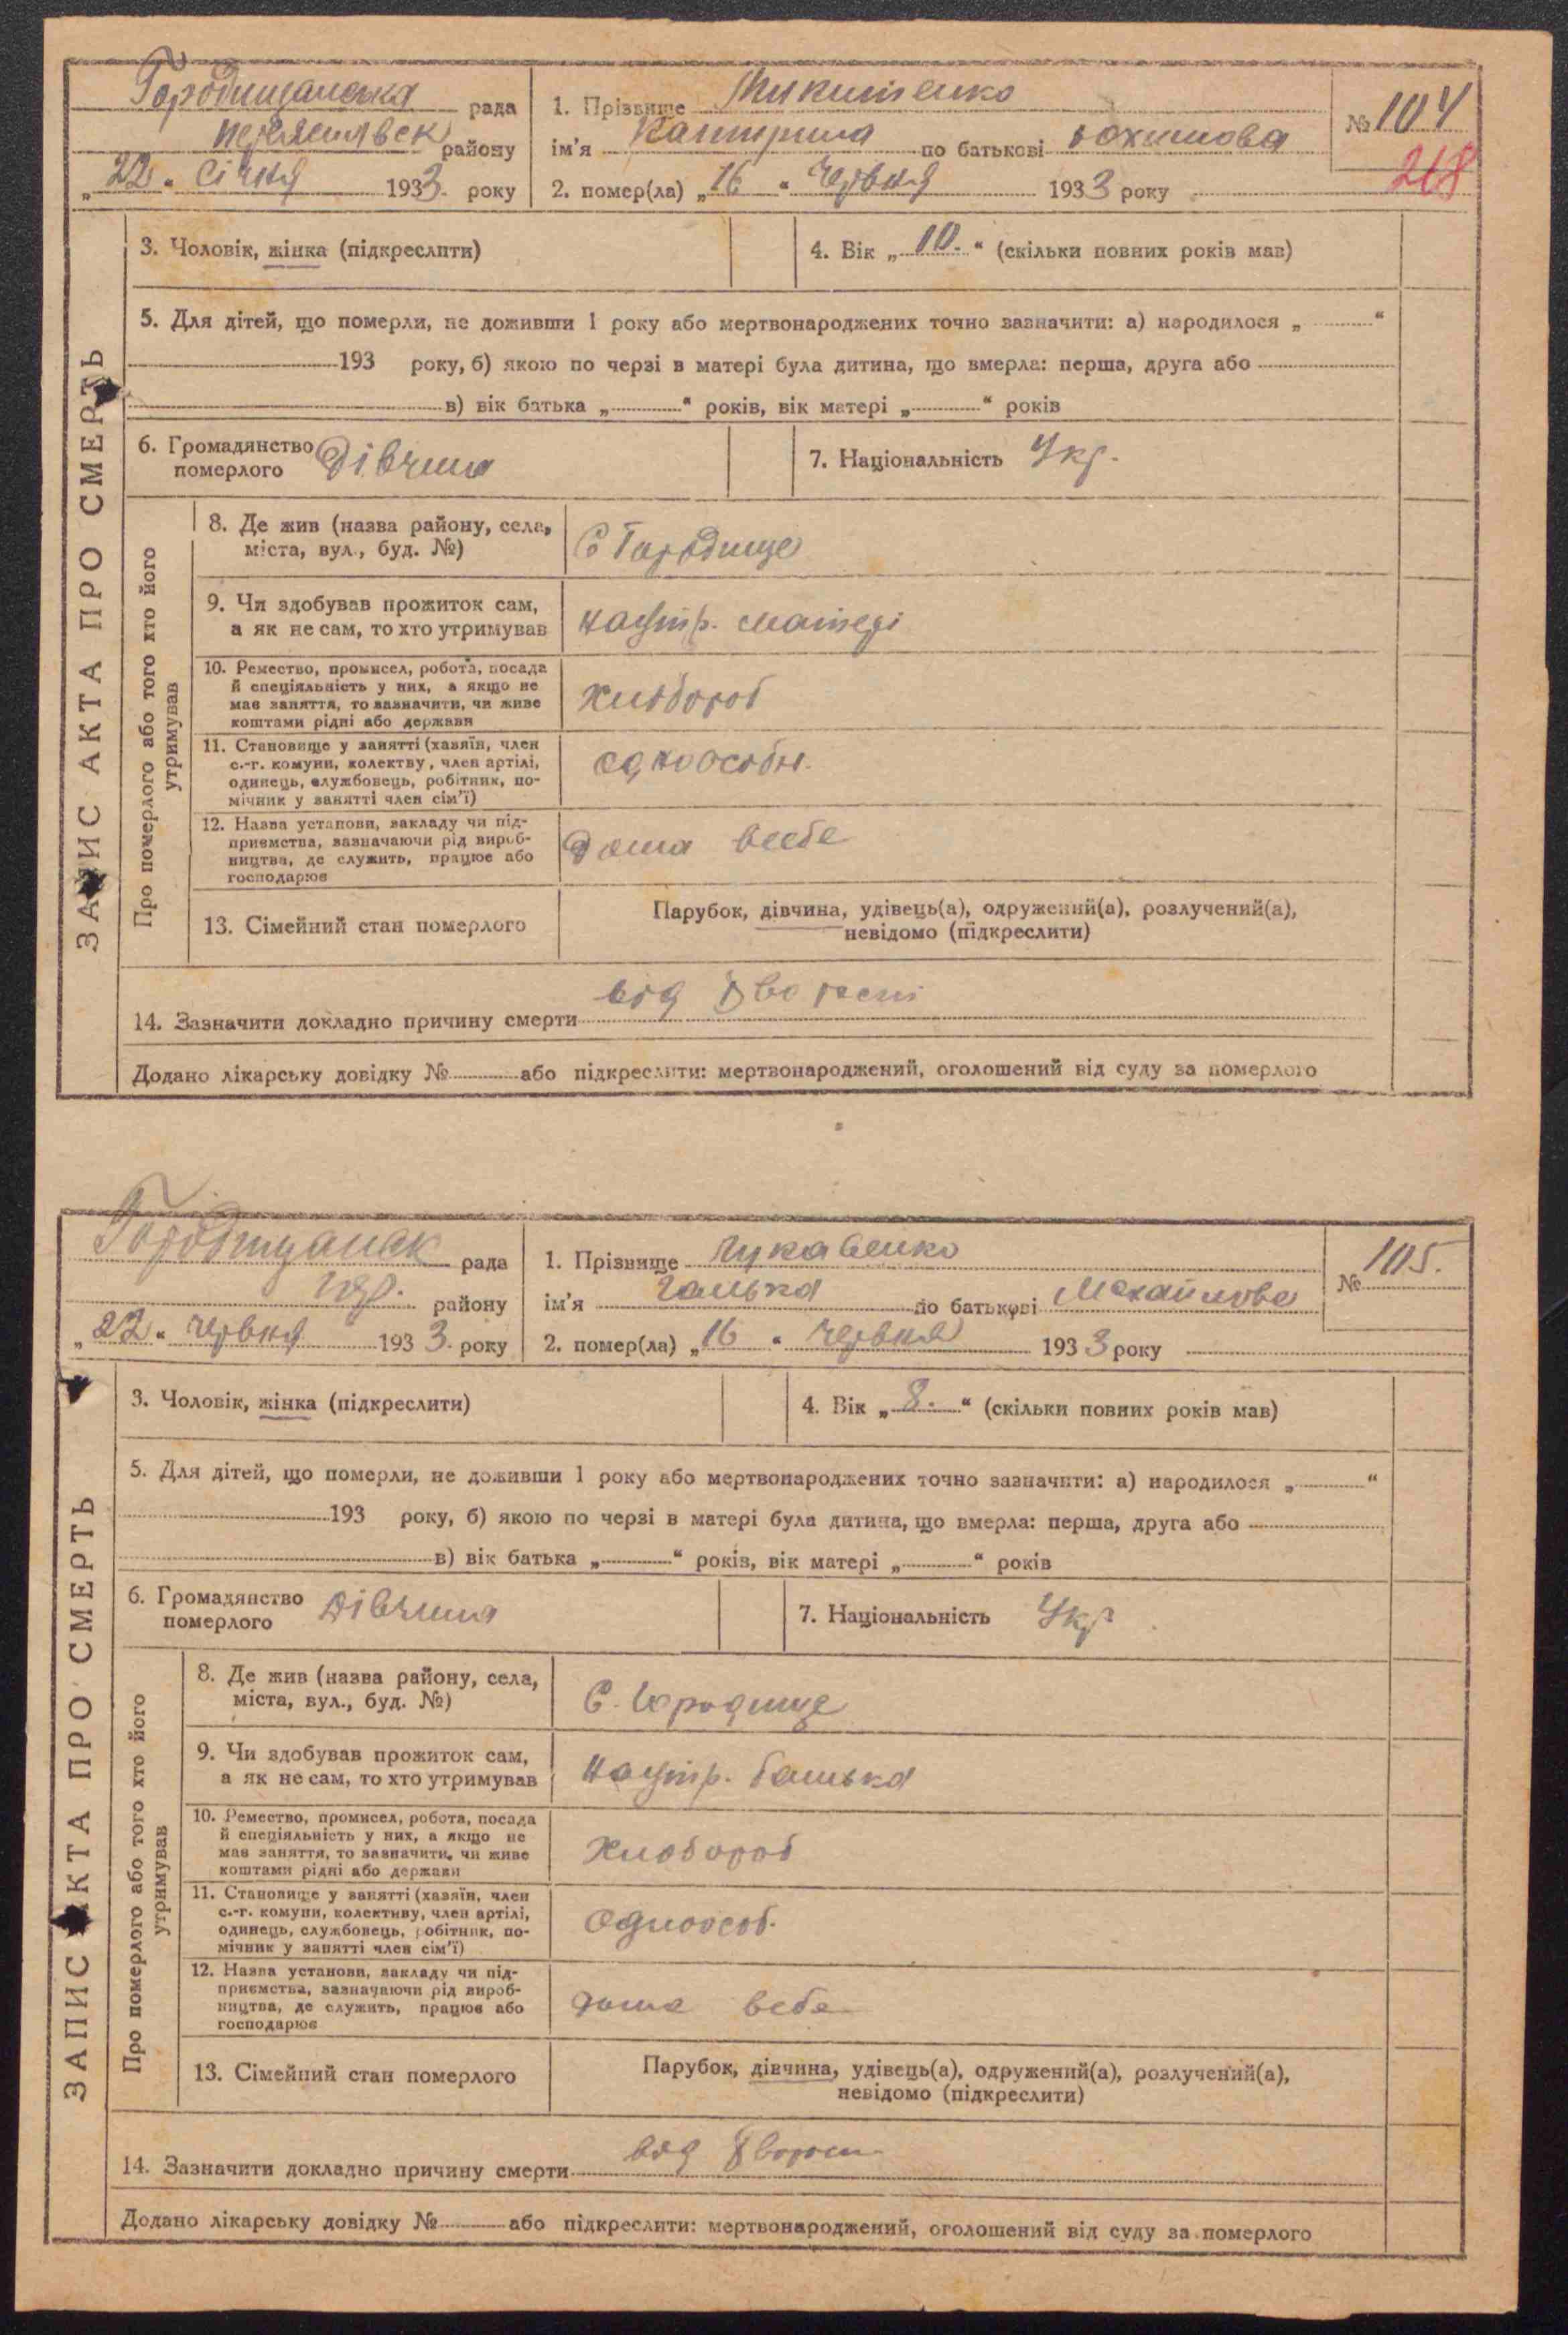 Городищанська рада
переяславськ району
„22“ Січня 1933 року
1. Прізвище Микитенко
ім'я Катирина по батькові Юхимова
2. помер(ла) „16“ Червня 1933 року
№ 104
268
ЗАПИС АКТА ПРО СМЕРТЬ
3. Чоловік, жінка (підкреслити)
4. Вік „10.“ (скільки повних років мав)
5. Для дітей, що померли, не доживши 1 року або мертвонароджених точно зазначити: а) народилося „ “
193 року, б) якою по черзі в матері була дитина, що вмерла: перша, друга або
в) вік батька „ “ років, вік матері „ “ років
6. Громадянство
померлого Дівчина
7. Національність Укр.
Про померлого або того хто його
утримував
8. Де жив (назва району, села,
міста, вул., буд. №)
С Городище
9. Чи здобував прожиток сам,
а як не сам, то хто утримував
на утр. матері
10. Ремество, промисел, робота, посада
й спеціяльність у них, а якщо не
має заняття, то зазначити, чи живе
коштами рідні або держави
Хлібороб
11. Становище у занятті (хазяїн, член
с.-г. комуни, колективу, член артілі,
одинець, службовець, робітник, по-
мічник у занятті член сім'ї)
одноособн.
12. Назва установи, закладу чи під-
приємства, зазначаючи рід вироб-
ництва, де служить, працює або
господарює
Дома всебе
13. Сімейний стан померлого
Парубок, дівчина, удівець(а), одружений(а), розлучений(а),
невідомо (підкреслити)
14. Зазначити докладно причину смерти від
Додано лікарську довідку № або підкреслити: мертвонароджений, оголошений від суду за померлого
Городищанськ рада
району
„22“ червня 1933 року
1. Прізвище
ім'я Галька по батькові Михайлова
2. помер(ла) „16“ Червня 1933 року
№ 105.
ЗАПИС АКТА ПРО СМЕРТЬ
3. Чоловік, жінка (підкреслити)
4. Вік „8.“ (скільки повних років мав)
5. Для дітей, що померли, не доживши 1 року або мертвонароджених точно зазначити: а) народилося „ “
193 року, б) якою по черзі в матері була дитина, що вмерла: перша, друга або
в) вік батька „ “ років, вік матері „ “ років
6. Громадянство
померлого Дівчина
7. Національність Укр
Про померлого або того хто його
утримував
8. Де жив (назва району, села,
міста, вул., буд. №)
С. Городище
9. Чи здобував прожиток сам,
а як не сам, то хто утримував
на утр. батька
10. Ремество, промисел, робота, посада
й спеціяльність у них, а якщо не
має заняття, то зазначити, чи живе
коштами рідні або держави
Хлібороб
11. Становище у занятті (хазяїн, член
с.-г. комуни, колективу, член артілі,
одинець, службовець, робітник, по-
мічник у занятті член сім'ї)
Одноособ.
12. Назва установи, закладу чи під-
приємства, зазначаючи рід вироб-
ництва, де служить, працює або
господарює
дома вебе
13. Сімейний стан померлого
Парубок, дівчина, удівець(а), одружений(а), розлучений(а),
невідомо (підкреслити)
14. Зазначити докладно причину смерти від
Додано лікарську довідку № або підкреслити: мертвонароджений, оголошений від суду за померлого